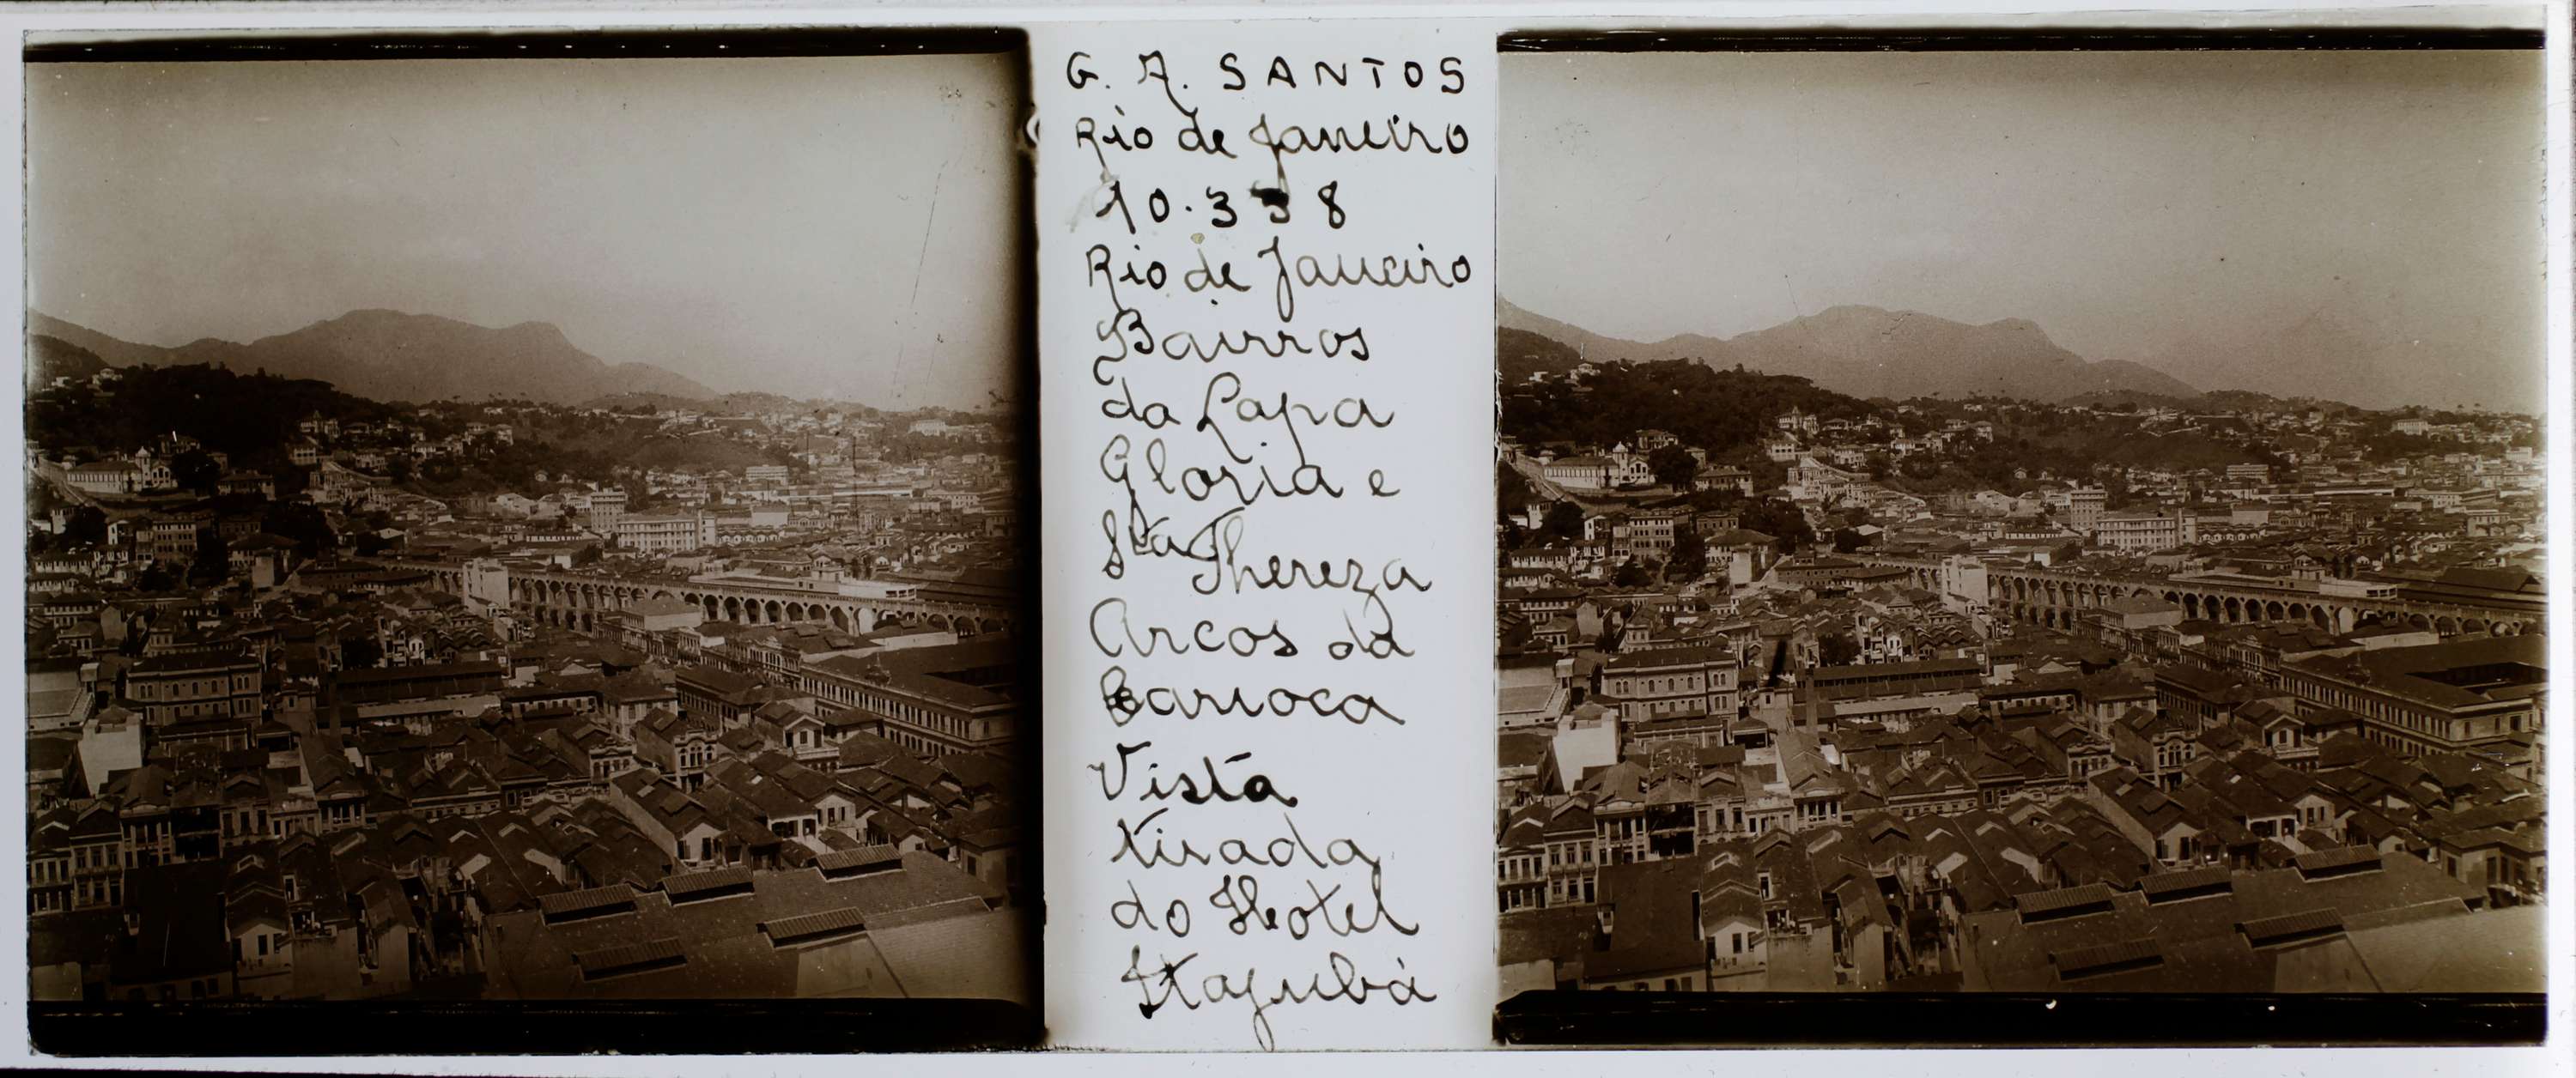 G. A. SANTOS
Rio de Janeiro
10.338
Rio de Janeiro
Bairros
da Lapa
Gloria e
Sta Thereza
Arcos da
Carioca
Vista
tirada
do Hotel
Itajubá